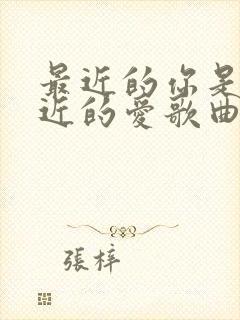 最近的你是
近的愛歌曲
張梓